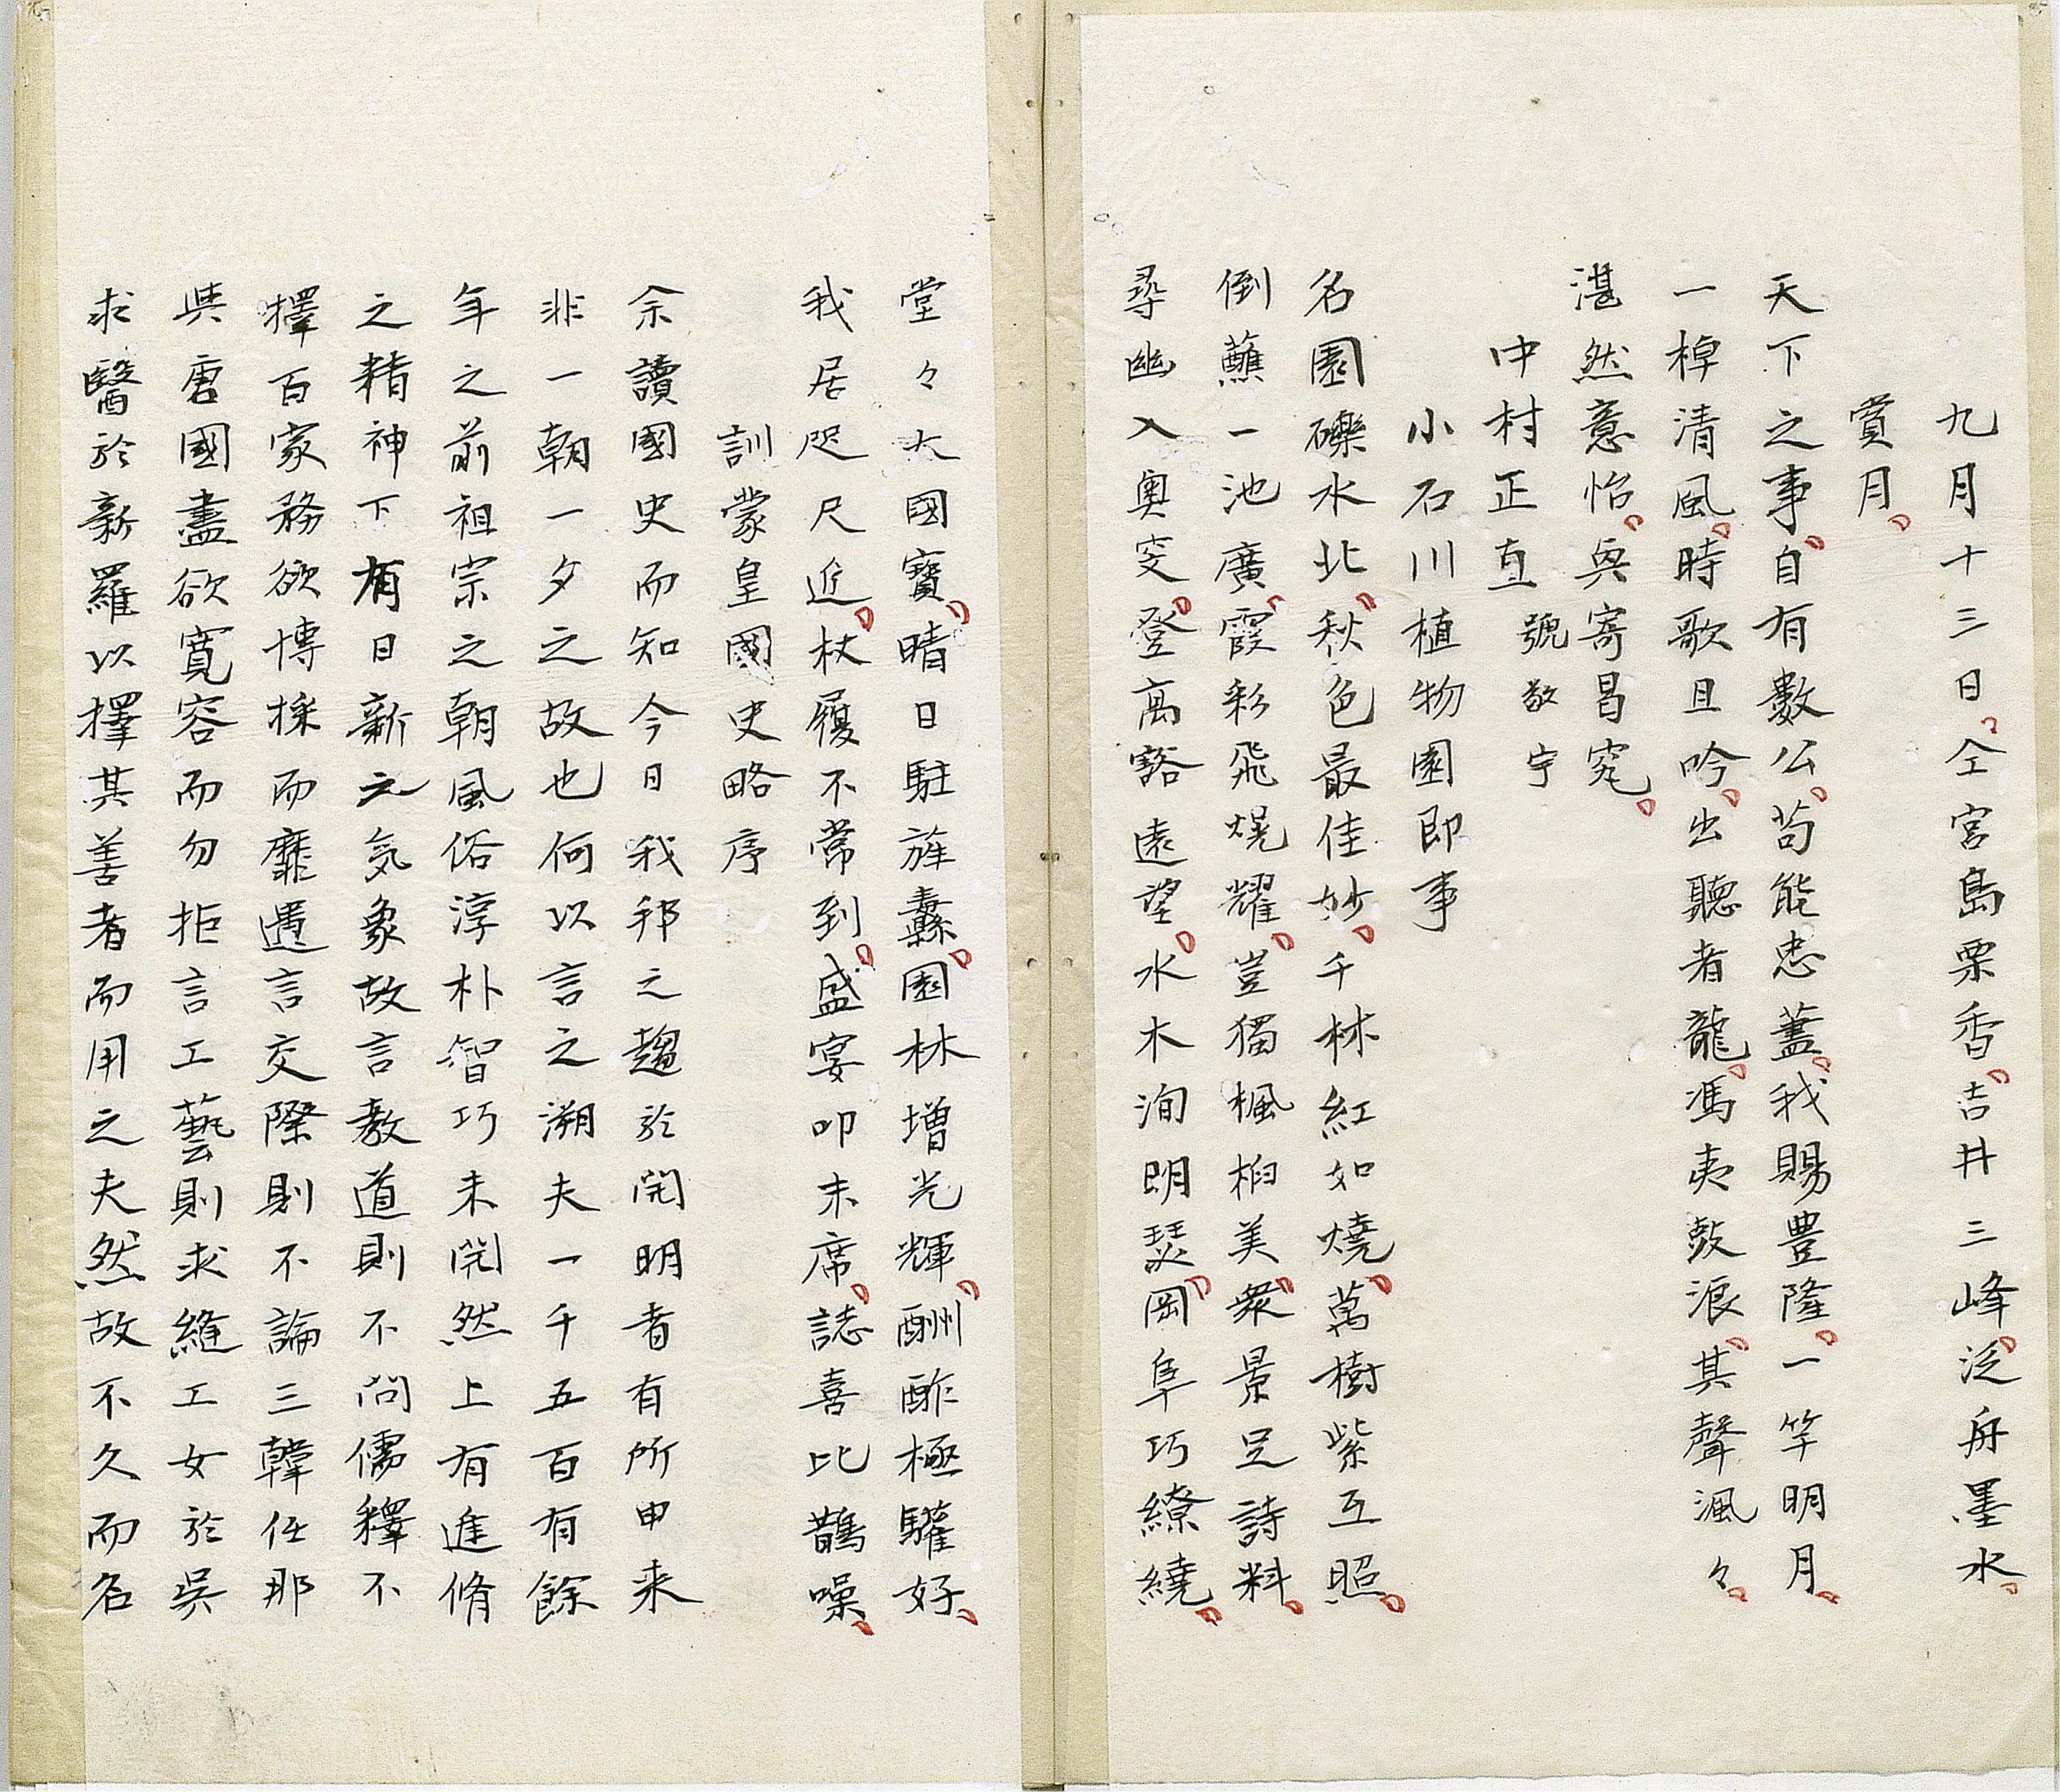 九月十三日仝宮島栗香吉井三峰泛舟墨水
賞月
天下之事自有數公苟能忠藎我賜豊隆一竿明月
一棹清風時歌且吟出聽者龍馮夷鼓浪其聲渢々
湛然意怡與寄曷究
中村正直 號敬宇
小石川植物園即事
名園礫水北秋色最佳妙千林紅如燒萬樹紫互照
倒蘸一池廣霞彩飛熀耀豈獨楓桕美衆景足詩料
尋幽入奧窔登高豁遠望水木洵明瑟岡阜巧繚繞
堂々大國寶晴日駐旌纛園林增光輝酬酢極驩好
我居咫尺近杖履不常到盛宴叨末席誌喜比鵲噪
訓蒙皇國史略序
余讀國史而知今日我邦之趨於開明者有所由来
非一朝一夕之故也何以言之溯夫一千五百有餘
年之前祖宗之朝風俗淳朴智巧未開然上有進脩
之精神下有日新之気象故言教道則不問儒釋不
擇百家務欲博採而靡遺言交際則不論三韓任那
與唐國盡欲寬容而勿拒言工藝則求縫工女於吳
求醫於新羅以擇其善者而用之夫然故不久而名